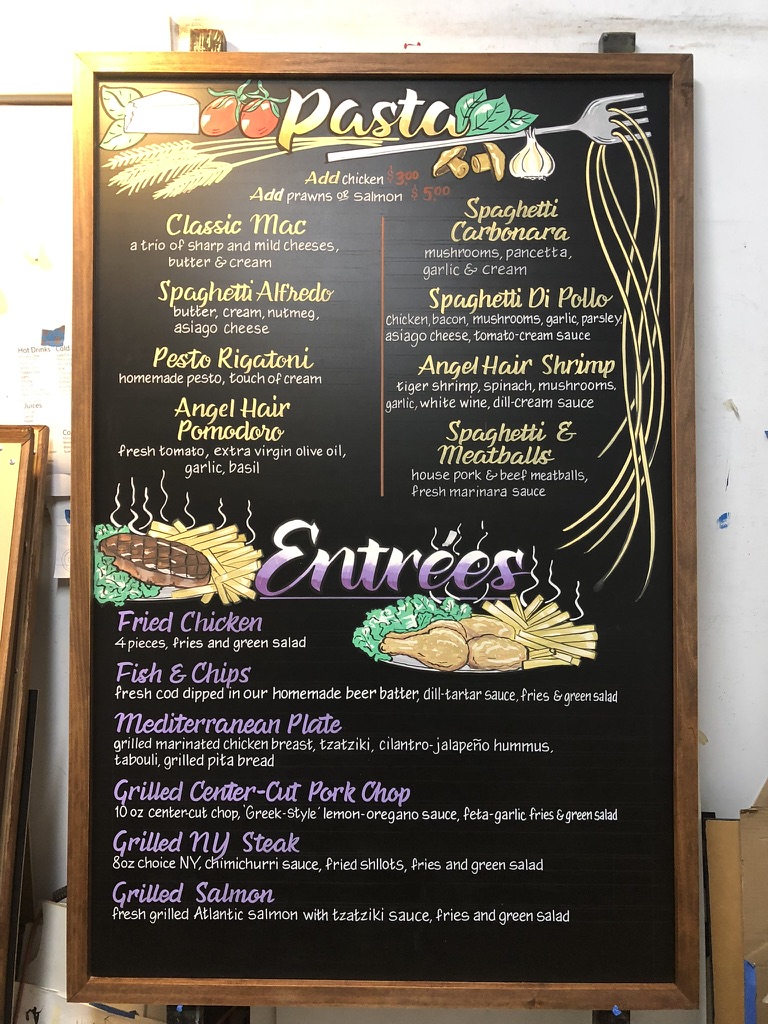 Pasta
Add chicken $3.00
Add prawns or salmon $5.00
Classic Mac
a trio of sharp and mild cheeses,
butter & cream
Spaghetti Alfredo
butter, cream, nutmeg,
asiago cheese
Pesto Rigatoni
homemade pesto, touch of cream
Angel Hair
Pomodoro
fresh tomato, extra virgin olive oil,
garlic, basil
Spaghetti
Carbonara
mushrooms, pancetta,
garlic & cream
Spaghetti Di Pollo
chicken, bacon, mushrooms, garlic, parsley,
asiago cheese, tomato-cream sauce
Angel Hair Shrimp
tiger shrimp, spinach, mushrooms,
garlic, white wine, dill-cream sauce
Spaghetti &
Meatballs
house pork & beef meatballs,
fresh marinara sauce
Entrées
Fried Chicken
4 pieces, fries and green salad
Fish & Chips
fresh cod dipped in our homemade beer batter, dill-tartar sauce, fries & green salad
Mediterranean Plate
grilled marinated chicken breast, tzatziki, cilantro-jalapeño hummus,
tabouli, grilled pita bread
Grilled Center-Cut Pork Chop
10 oz center-cut chop, 'Greek-style' lemon-oregano sauce, feta-garlic fries & green salad
Grilled NY Steak
8oz choice NY, chimichurri sauce, fried shllots, fries and green salad
Grilled Salmon
fresh grilled Atlantic salmon with tzatziki sauce, fries and green salad
Hot Drinks Cold
Juices